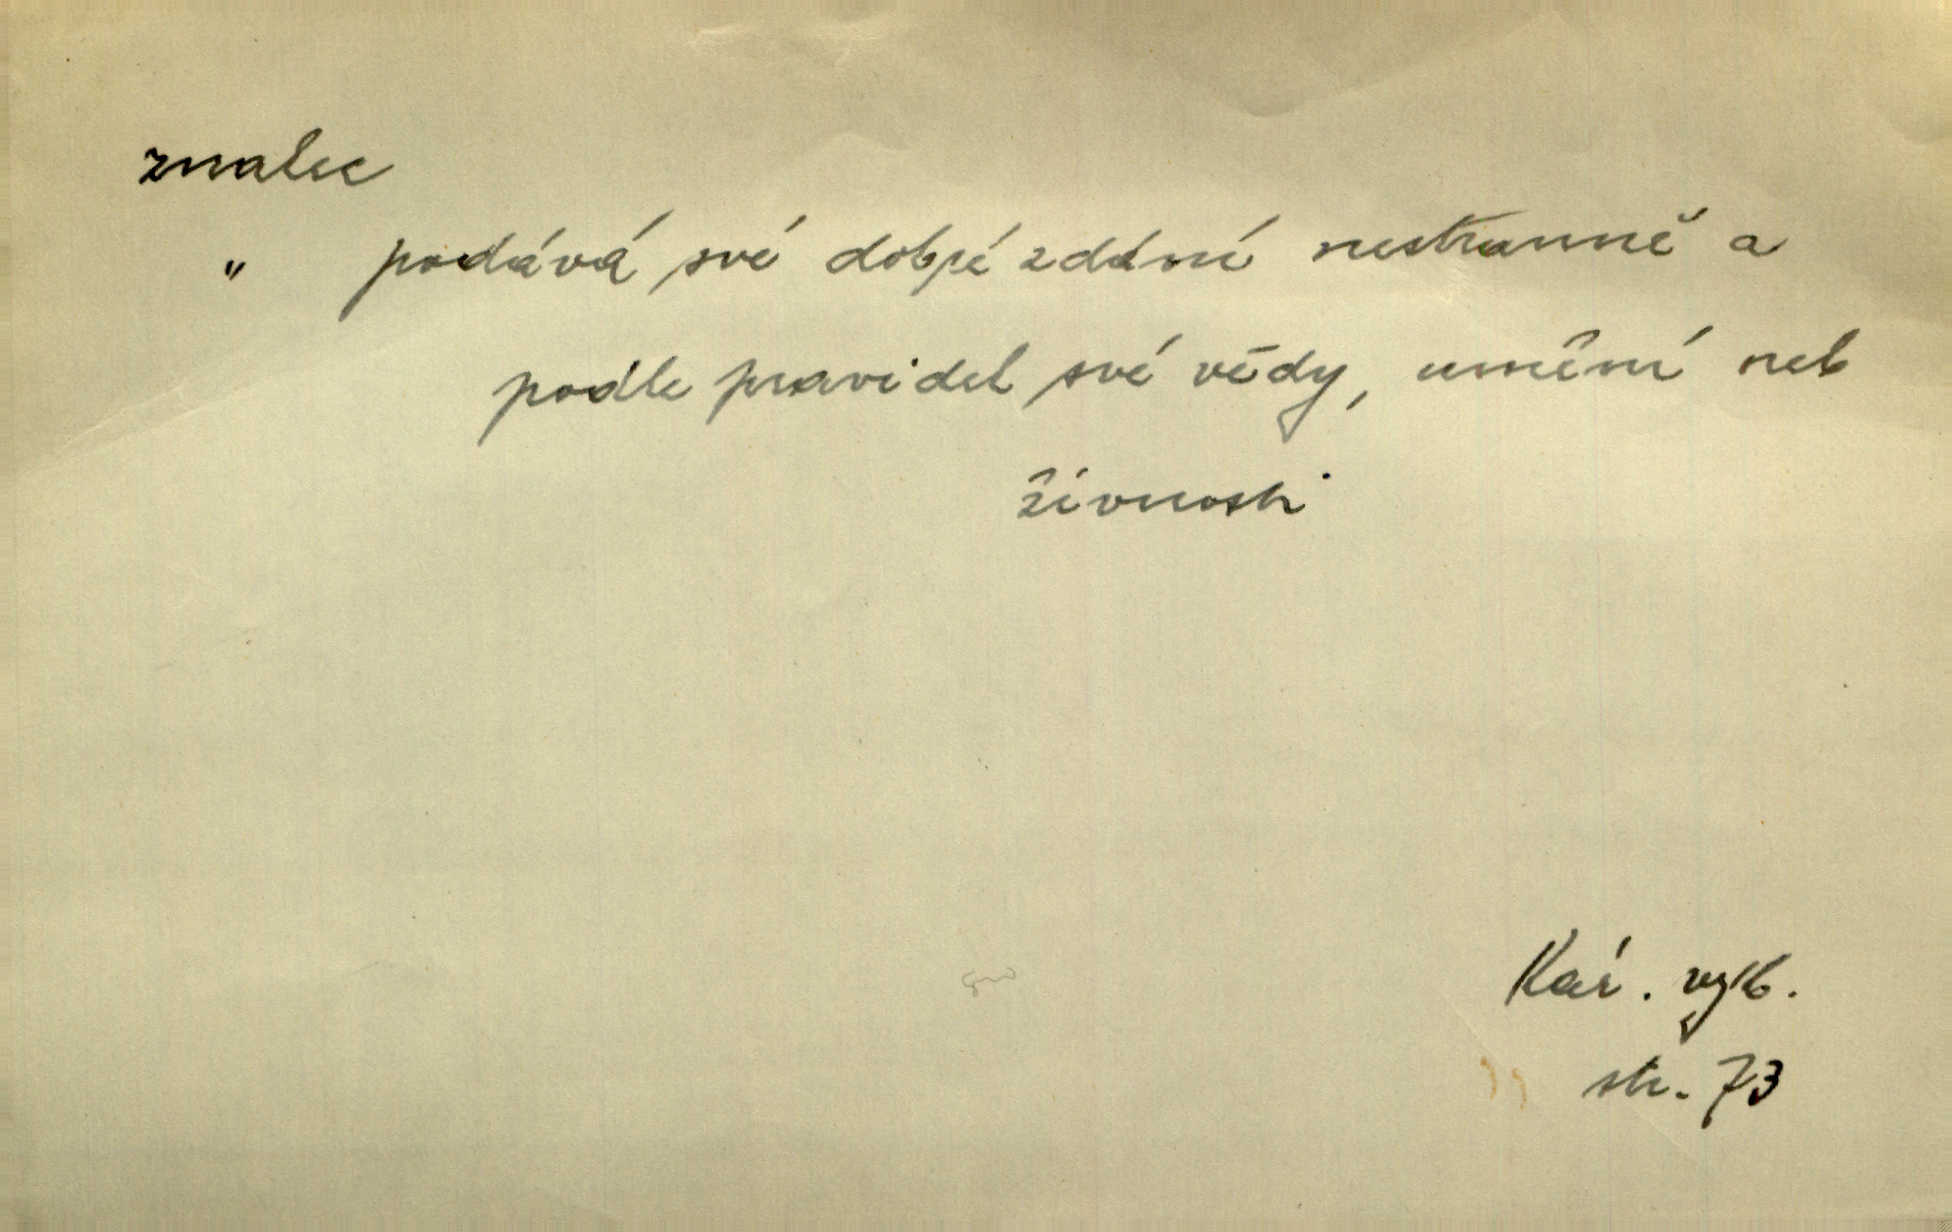 znalec
" podává své dobré zdání nestranně a
podle pravidel své vědy, umění neb
živnosti
Kár. vyb.
str. 73